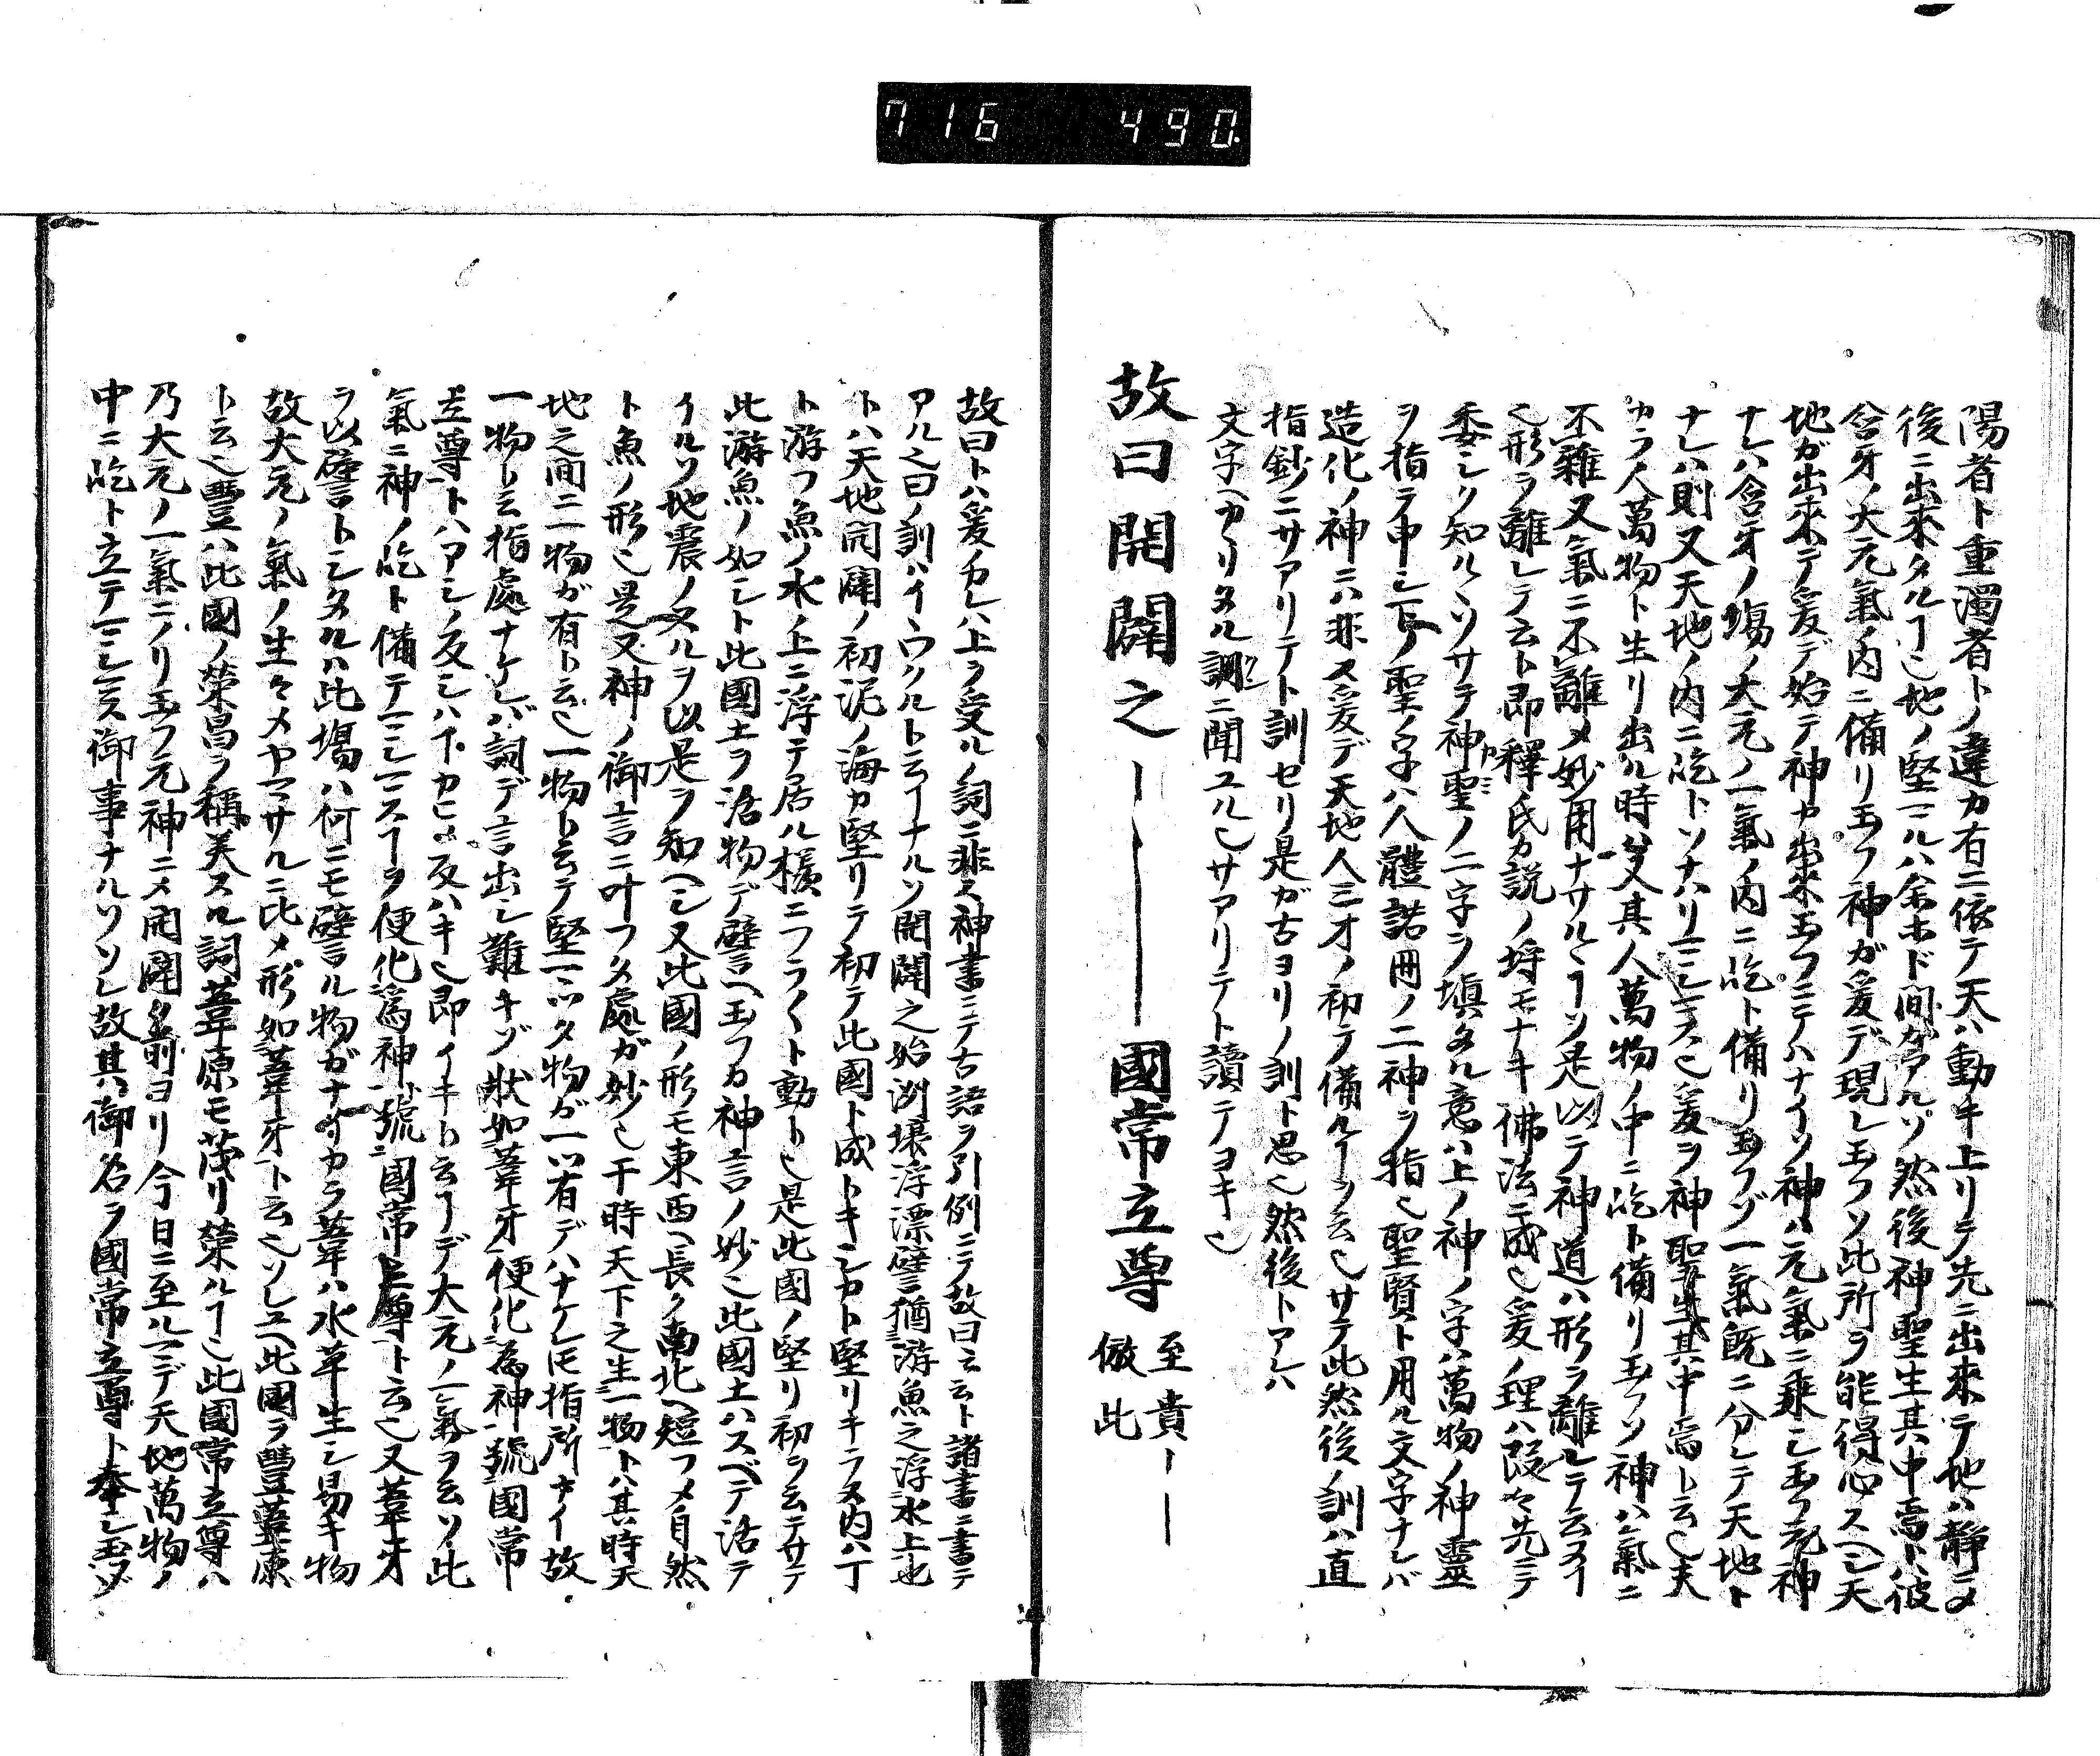 716 490.
陽者ト重濁者トノ違カ有ニ依テ天ハ動キ上リテ先ニ出來テ地ハ静ニメ
後ニ出來タルヿ也地ノ堅マルハ余ホド間ガアルソ然後神聖生其中焉トハ彼
含牙ノ大元氣ノ内ニ備リ玉フ神ガ爰デ現レ玉フソ此所ヲ能得心スヘシ天
地ガ出來テ爰デ始テ神ガ出来玉フニテハナイソ神ハ元氣ニ乘シ玉フ元神
ナレハ含牙ノ塲ノ大元ノ一氣ノ内ニ訖ト備リ玉フゾ一氣既ニ分レテ天地ト
ナレハ則又天地ノ内ニ訖トソナハリマシマス也爰ヲ神聖生其中焉ト云也夫
カラ人萬物ト生リ出ル時ハ又其人萬物ノ中ニ訖ト備リ玉フソ神ハ氣ニ
不雜又氣ニ不離メ妙用ナサルヽヿソ是以テ神道ハ形ヲ離レテ云ヌイ
也形ヲ離レテ云ト即釋氏カ説ノ埒モナキ佛法ニ成也爰ノ理ハ段々先ニテ
委シク知ルヽソサテ神聖ノ二字ヲカミト填タル意ハ上ノ神ノ字ハ萬物ノ神靈
ヲ指テ申シ下ノ聖ノ字ハ人體諾冊ノ二神ヲ指也聖賢ト用ル文字ナレバ
造化ノ神ニハ非ス爰デ天地人三才ノ初テ備ルヿヲ云也サテ此然後ノ訓ハ直
指鈔ニサアリテト訓セリ是ガ古ヨリノ訓ト思也然後トアレハ
文字ヘカヽリタル調ニ聞ユル也サアリテト讀テヨキ也
故曰開闢之――國常立尊 至貴―― 倣此
故曰トハ爰カレハ上ヲ受ルノ詞ニ非ス神書ニテ古語ヲ引例ニテ故曰云云ト諸書ニ書テ
アル也曰ノ訓ハイヽウクルト云ヿナルソ開闢之始洲壤浮漂譬猶游魚之浮水上也
トハ天地開闢ノ初泥ノ海カ堅リテ初テ此國ト成トキシカト堅リキラヌ内ハ丁
ト游フ魚ノ水ノ上ニ浮テ居ル樣ニフラ〱ト動ト也是此國ノ堅リ初ヲ云テサテ
此游魚ノ如シト此國土ヲ活物デ譬ヘ玉フカ神言ノ妙也此國土ハスベテ活テ
イルソ地震ノスルヲ以是ヲ知ヘシ又此國ノ形モ東西ヘ長ク南北ヘ短フメ自然
ト魚ノ形也是又神ノ御言ニ叶フタ處ガ妙也于時天下之生一物トハ其時天
地之間ニ一物ガ有ト云也一物ト云テ堅マツタ物ガ一ツ有デハナケレ𪜈指所ナイ故
一物ト云指處ナケレバ詞デ言出シ難キゾ狀如葦牙便化為神號國常
立尊トハアシノ反シハイカヒメ反ハキ也即イキト云ヿデ大元ノ一氣ヲ云ソ此
氣ニ神ノ訖ト備テマシマスヿヲ便化為神號國常立尊ト云也又葦牙
ヲ以譬トシタルハ此塲ハ何ニモ譬ル物ガナイカラ葦ハ水草生シ易キ物
故大元ノ氣ノ生々メヤマサルニ比メ形如葦牙ト云也ソレユヘ此國ヲ豐葦原
ト云也豐ハ此國ノ榮昌ヲ稱美スル詞葦原モ茂リ榮ルヿ也此國常立尊ハ
乃大元ノ一氣ニノリ玉フ元神ニメ開闢ノ前ヨリ今日ニ至ルマデ天地萬物ノ
中ニ訖ト立テマシマス御事ナルソソレ故其御名ヲ國常立尊ト奉シ玉フゾ